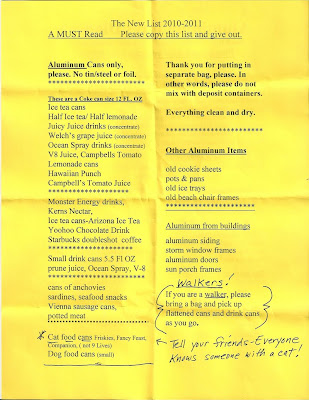 The New List 2010-2011
A MUST Read Please copy this list and give out.
Aluminum Cans only,
please. No tin/steel or foil.
**************************
These are a Coke can size 12 FL. OZ
Ice tea cans
Half Ice tea/ Half lemonade
Juicy Juice drinks (concentrate)
Welch's grape juice (concentrate)
Ocean Spray drinks (concentrate)
V8 Juice, Campbells Tomato
Lemonade cans
Hawaiian Punch
Campbell's Tomato Juice
**************************
Monster Energy drinks,
Kerns Nectar,
Ice tea cans-Arizona Ice Tea
Yoohoo Chocolate Drink
Starbucks doubleshot coffee
**************************
Small drink cans 5.5 Fl OZ
prune juice, Ocean Spray, V-8
**************************
cans of anchovies
sardines, seafood snacks
Vienna sausage cans,
potted meat
**************************
* Cat food cans Friskies, Fancy Feast,
Companion, ( not 9 Lives)
Dog food cans (small)
Thank you for putting in
separate bag, please. In
other words, please do not
mix with deposit containers.
Everything clean and dry.
**************************
Other Aluminum Items
old cookie sheets
pots & pans
old ice trays
old beach chair frames
**************************
Aluminum from buildings
aluminum siding
storm window frames
aluminum doors
sun porch frames
Walkers!
If you are a walker, please
bring a bag and pick up
flattened cans and drink cans
as you go.
Tell your friends-Everyone
knows someone with a cat!